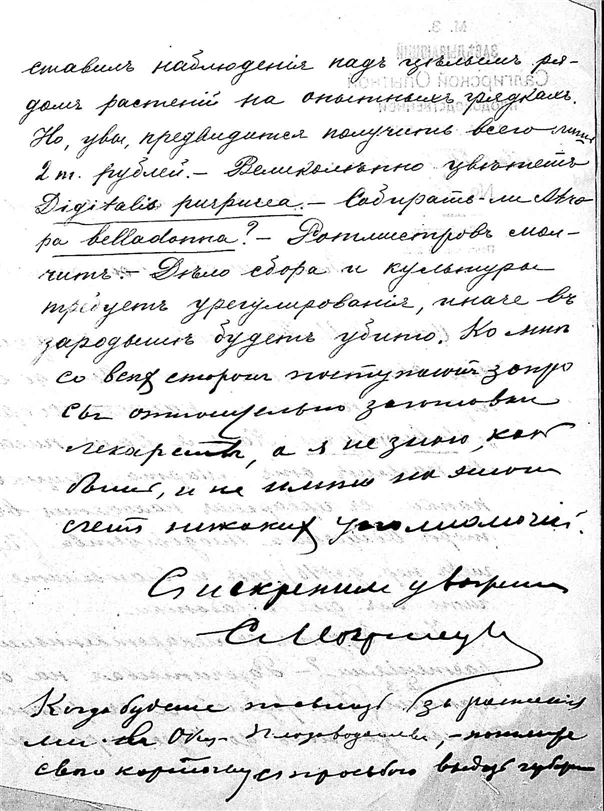 ставилъ наблюденія надъ цѣлымъ ря-
домъ растеній на опытныхъ грядкахъ.
Но, увы, предвидится получить всего лишь
2 т. рублей. – Великолѣпно цвѣтетъ
Digitalis purpurea. – Собирать-ли Atro
pa belladonna? – Ротмистровъ мол-
читъ. – Дѣло сбора и культуры
требуетъ урегулированія, иначе въ
зародышѣ будетъ убито. Ко мнѣ
со всѣхъ сторонъ поступаютъ запро
сы относительно заготовки
лекарств, а я не знаю, какъ
быть, и не имѣю на этотъ
счетъ никакихъ уполномочій.
Съ искреннимъ уваженіемъ
С. Мокржецкій
Когда будете
ми Плодоводства, –
свою карточку съ просьбою выдать